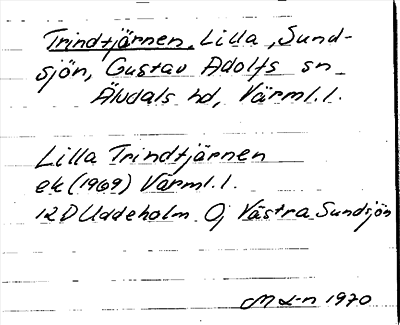 Trindtjärnen, Lilla, Sund-
sjön, Gustav Adolfs sn
Älvdals hd, Värml.l.
Lilla Trindtjärnen
ek (1969) Värml.l.
12D Uddeholm 0j Västra Sundsjön
1970